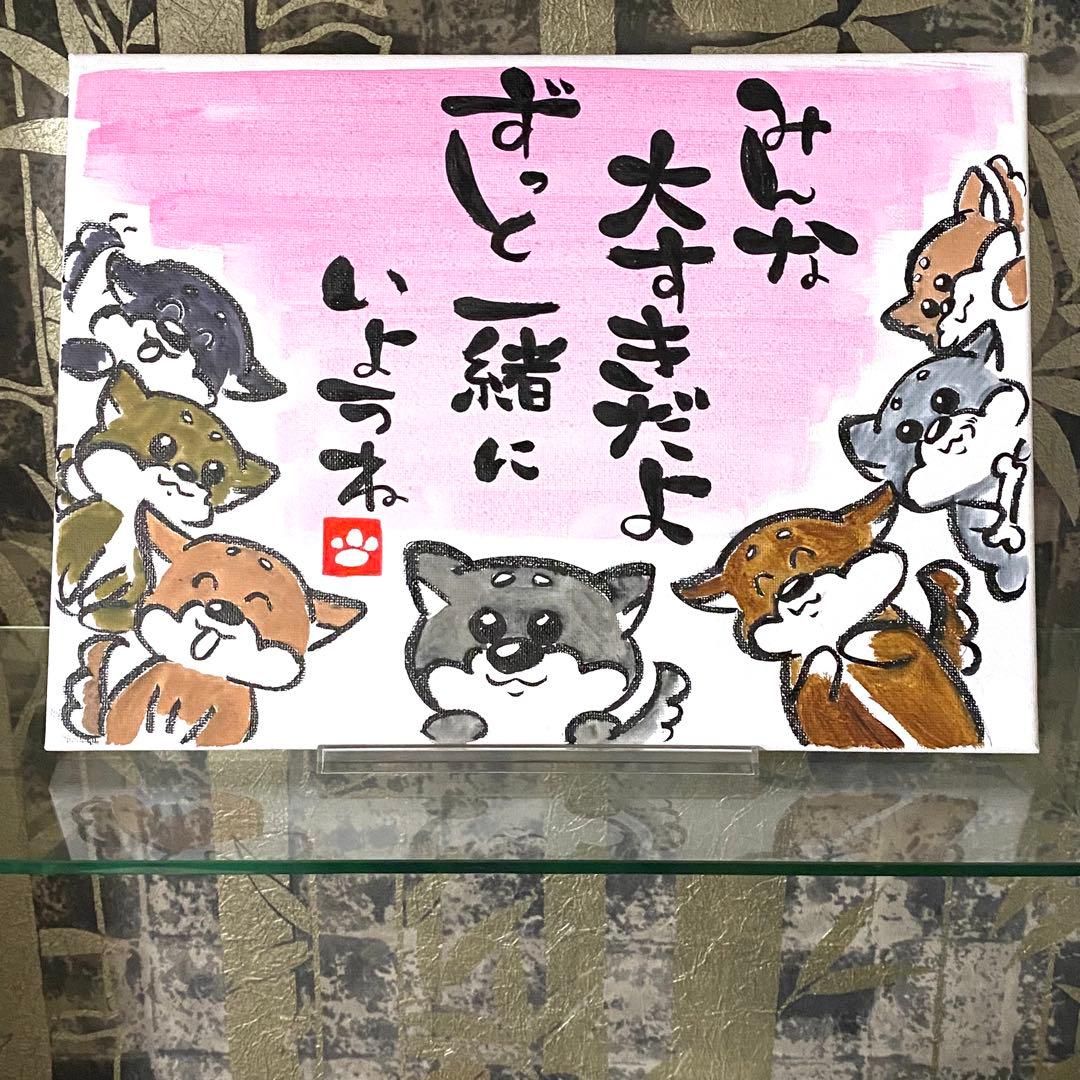 みんな
大すきだよ
ずっと一緒に
いようね